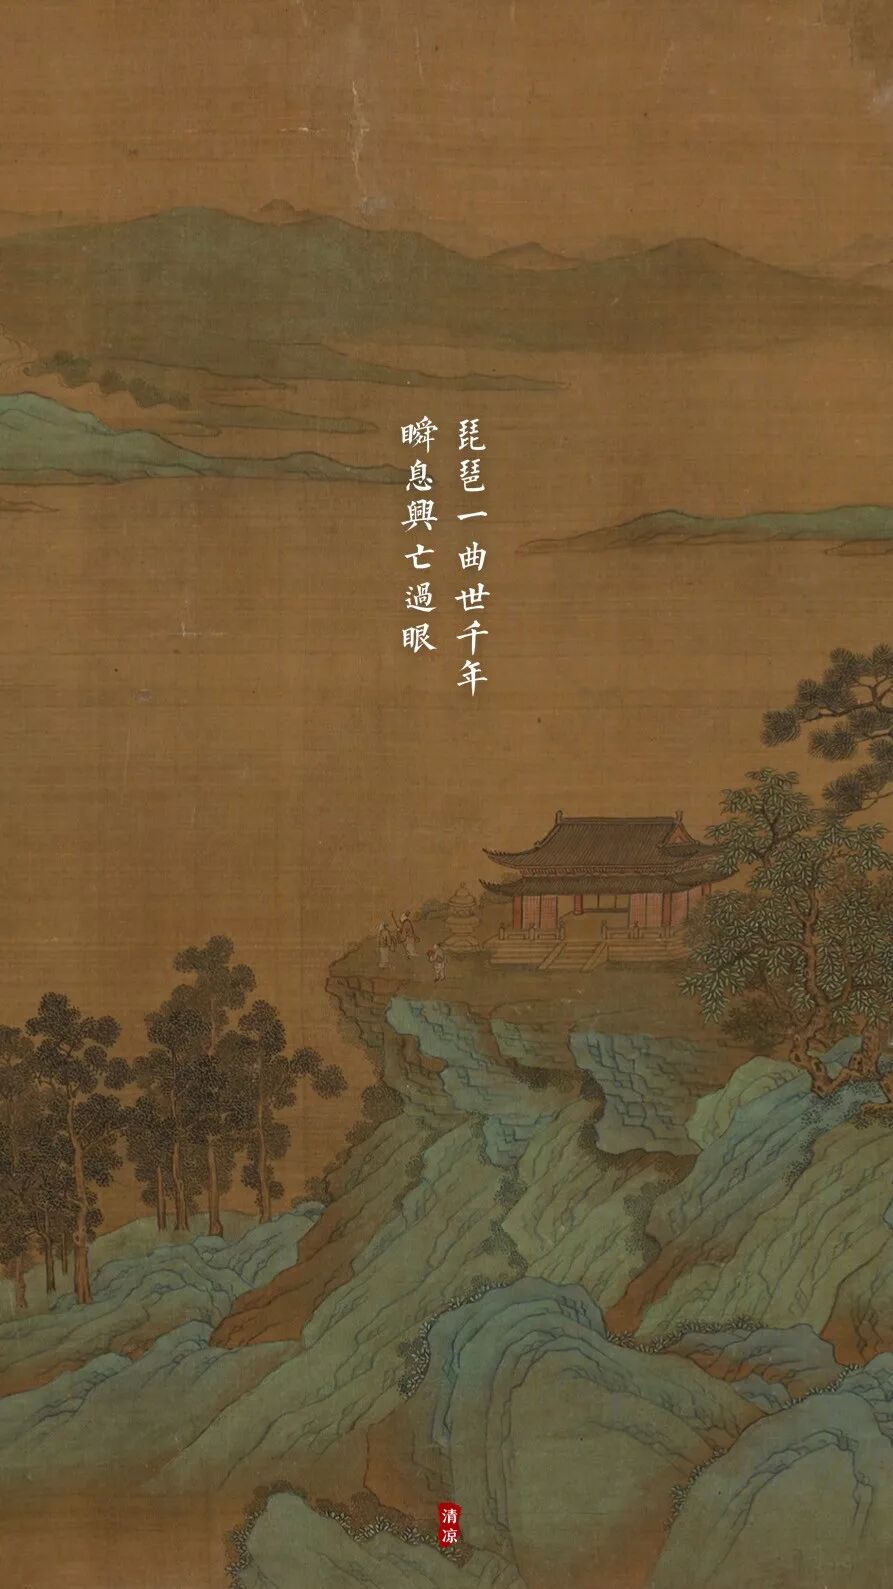 琵琶一曲世千年
瞬息興亡過眼
清凉